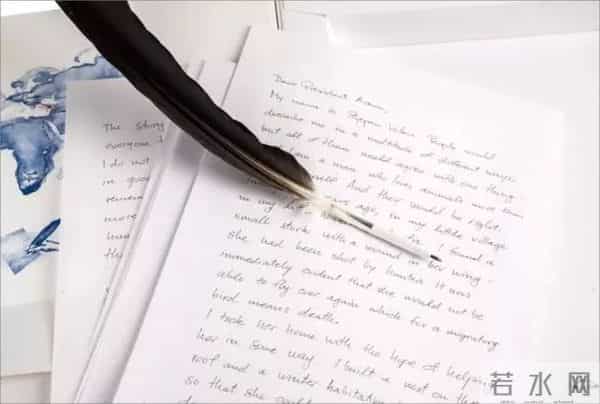 The
everyone I
I do not
in good
more
Dear President Aoun,
My name is Stjepan Vokić. People would
describe me in a multitude of different ways
but all of them would agree with one thing -
a man who loves animals more than
And they would be right.
years ago, in my little village
in my I found a
small stork with a wound in her wing -
she had been shot by hunters. It was
immediately evident that she would not be
able to fly ever again which for a migrating
bird means death.
I took her home with the hope of helping
her in some way. I built a nest on the
roof and a winter habitation
so that she could
若水网